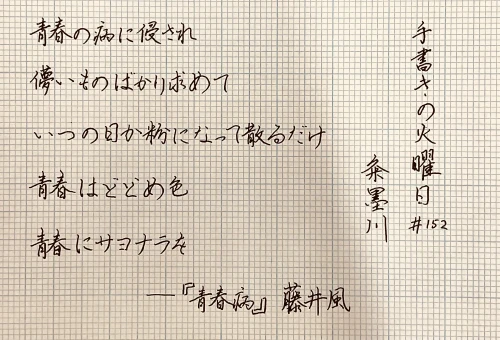 手書きの火曜日 #152
青春の病に侵され
儚いものばかり求めて
いつの日か粉になって散るだけ
青春はどどめ色
青春にサヨナラを
──『青春病』 藤井風